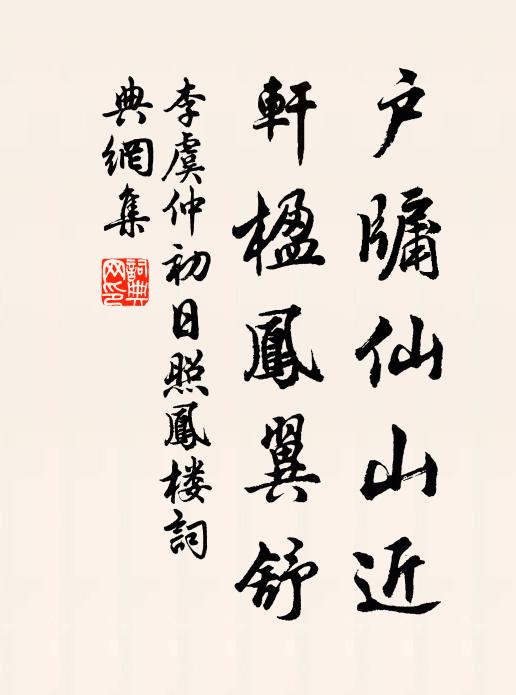 户牖仙山近
軒楹鳳翼舒
李虞仲初日照鳳楼詞
典網集
詞典网印